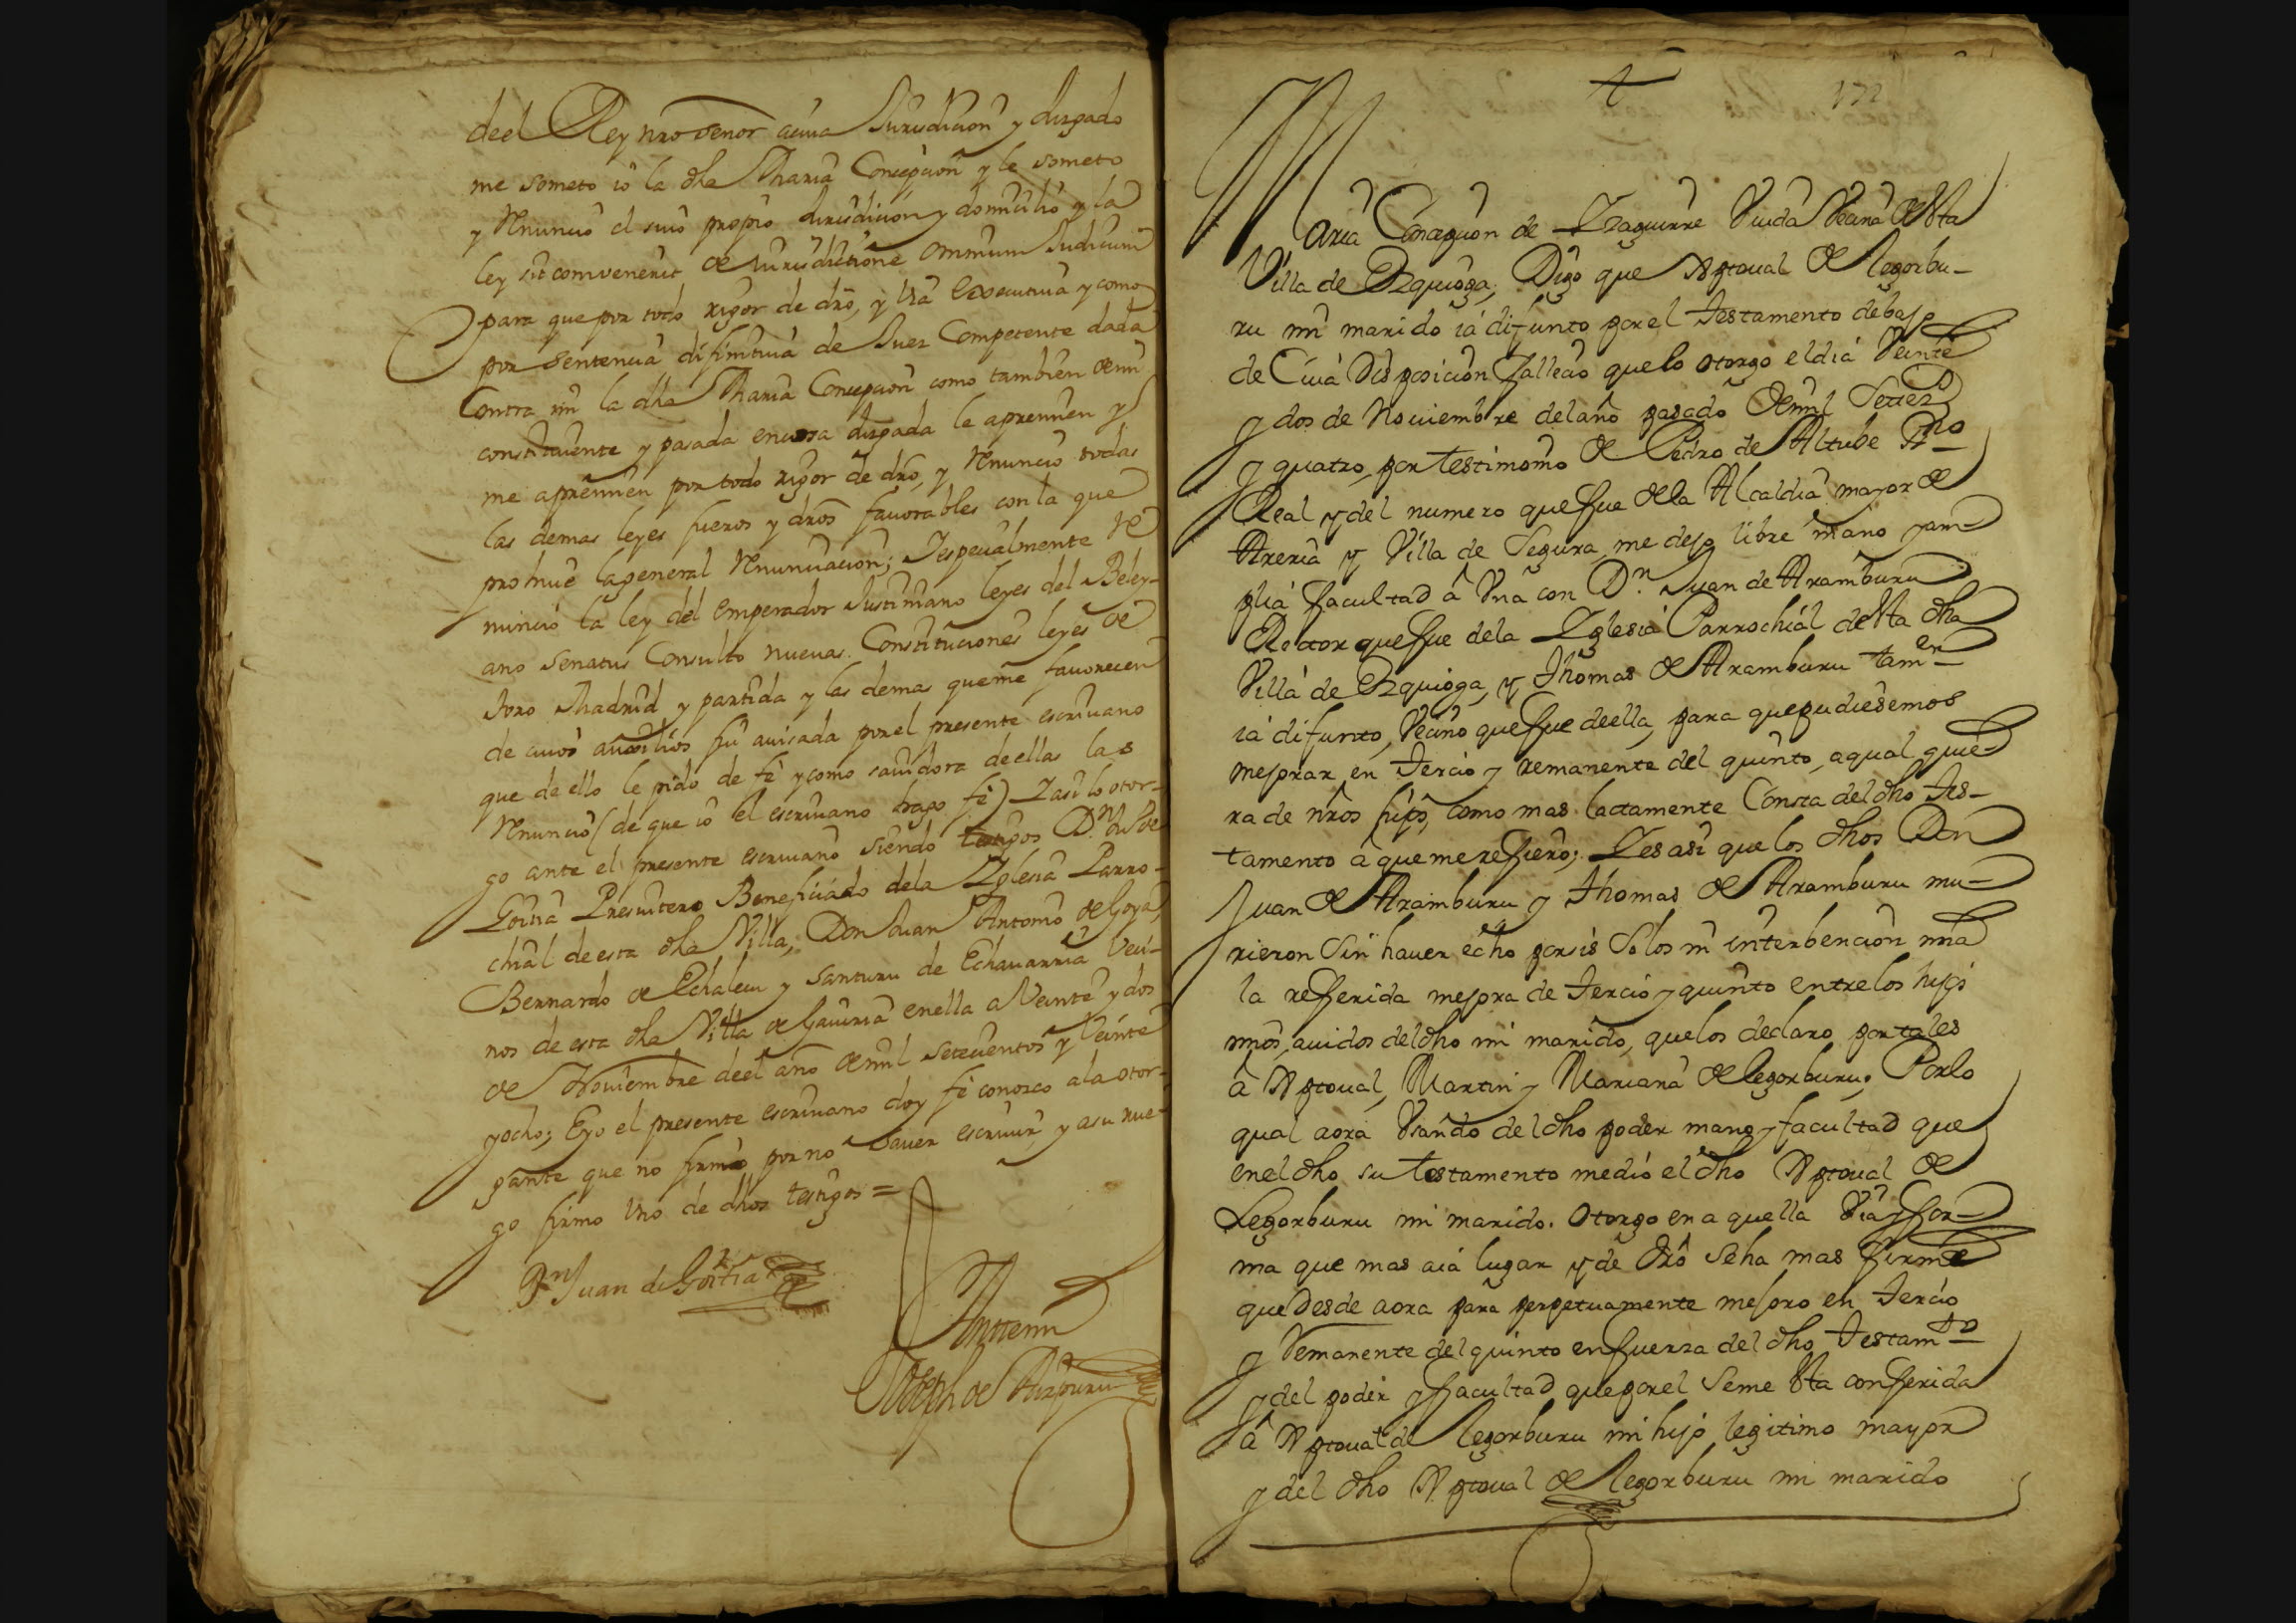 deel Rey nro señor a cuia Jurisdicion y Jusgado
me someto io la dha Maria Concepcion y le someto
y Renuncio el suio propio Jurisdicion y domicilio y la
ley sit combenerit de Jurisdictione omnium Judicum
para que por todo rigor de dro, y via executiua y como
por sentencia difinitiua de Juez Competente dada
Contra mi la dha Maria Concepcion como tambien de mi
constituente y pasada en cosa Jusgada le apremien y
me apremien por todo rigor de dro, y Renuncio todas
las demas leyes fueros y dros fauorables con la que
prohiue la general Renunciacion; I especialmente Re
nuncio la ley del emperador Justiniano leyes del Beley-
ano senatus Consulto nueuas Constituciones leyes de
toro Madrid y partida y las demas que me fauorecen
de cuios auxilios fui auisada por el presente escriuano
que de ello le pido de fe y como sauidora de ellas las
Renuncio (de que io el escriuano hago fe) I asi lo otor-
go ante el presente escriuano siendo testigos Dn Ju de
Goitia Presuitero Beneficiado dela Iglesia Parro-
chial de esta dha Villa, Don Juan Antonio de Goya,
Bernardo de Echaleu y Santuru de Echauarria Veci-
nos de esta dha Villa de Gauiria en ella a Veinte y dos
de Nouiembre deel año de mil setecientos y Veinte
y ocho; E yo el presente escriuano doy fe conosco a la otor-
gante que no firmo por no sauer escriuir y a su rue-
go firmo Vno de dhos testigos =
Dn Juan de Goitia
Antemi
Joseph de Aizpuru
172
Maria Concepcion de Izaguirre Viuda Vecina de Sta
Villa de Ezquioga; Digo que Xptoual de legorbu-
ru mi marido ia difunto por el testamento debajo
de Cuia Disposicion fallecio que lo otorgo el dia Veinte
y dos de Nouiembre del año pasado de mil Settez
y quatro, por testimonio de Pedro de Altube Ssno
Real y del numero que fue de la Alcaldia mayor de
Areria y Villa de Segura, me dejo libre mano y am-
plia facultad â Vna con Dn. Juan de Aramburu
Rector que fue dela Iglesia Parrochial de Sta dha
Villa de Ezquioga, y Thomas de Aramburu tamen
ia difunto, Vecino que fue de ella, para que pudiesemos
mejorar en tercio y remanente del quinto, a qual quie-
ra de nros hijos, como mas lactamente Consta del dho tes-
tamento â que me refiero; I es asi que los dhos Don
Juan de Aramburu y Thomas de Aramburu mu-
rieron sin hauer echo por sis solos ni interbencion mia
la referida mejora de tercio y quinto entre los hijos
mios, auidos del dho mi marido, que los declaro por tales
â Xptoual, Martin y Mariana de legorburu; Por lo
qual aora Vsando del dho poder mano y facultad que
en el dho su testamento me dio el dho Xptoual de
Legorburu mi marido. Otorgo en a quella Via y for-
ma que mas aia lugar y de Dro seha mas firme
que Desde aora para perpetuamente mejoro en tercio
y Remanente del quinto en fuerza del dho testamto
y del poder y facultad que por el se me Sta conferida
â Xptoual de legorburu mi hijo legitimo mayor
y del dho Xptoual de legorburu mi marido